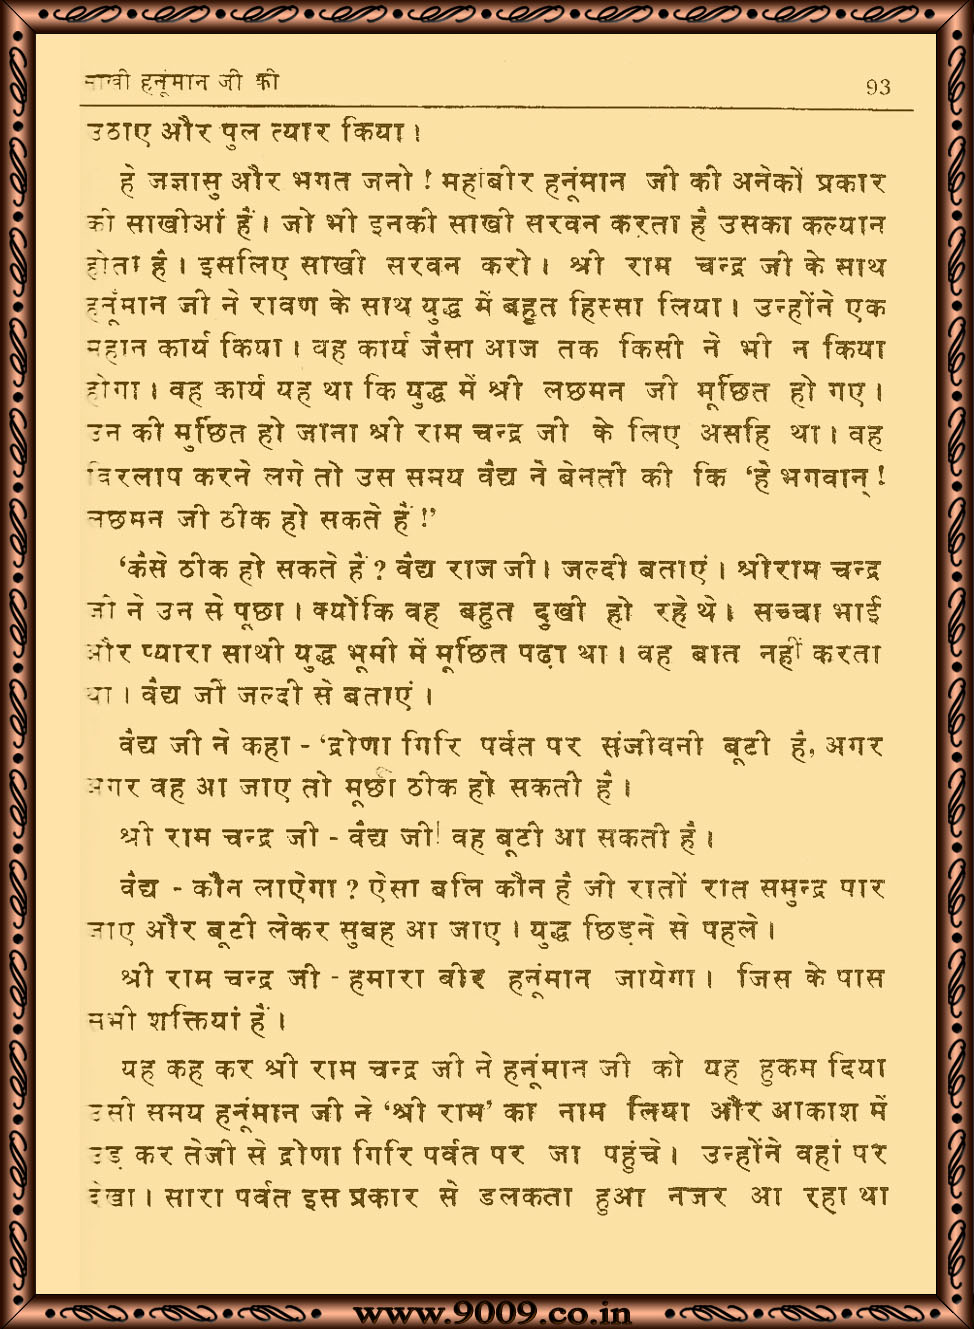 साखी हनूंमान जी की 93
उठाए और पुल त्यार किया।
हे जज्ञासु और भगत जनो ! महांबीर हनूंमान जी की अनेकों प्रकार
की साखीआं हैं। जो भी इनकी साखी सरवन करता है उसका कल्यान
होता है। इसलिए साखी सरवन करो। श्री राम चन्द्र जी के साथ
हनूंमान जी ने रावण के साथ युद्ध में बहुत हिस्सा लिया। उन्होंने एक
महान कार्य किया। वह कार्य जैसा आज तक किसी ने भी न किया
होगा। वह कार्य यह था कि युद्ध में श्री लछमन जी मूर्छित हो गए।
उन की मुर्छित हो जाना श्री राम चन्द्र जी के लिए असहि था। वह
विरलाप करने लगे तो उस समय वैद्य ने बेनती की कि ‘हे भगवान् !
लछमन जी ठीक हो सकते हैं !’
‘कैसे ठीक हो सकते हैं ? वैद्य राज जी। जल्दी बताएं। श्रीराम चन्द्र
जी ने उन से पूछा। क्योंकि वह बहुत दुखी हो रहे थे। सच्चा भाई
और प्यारा साथी युद्ध भूमी में मूर्छित पढ़ा था। वह बात नहीं करता
था। वैद्य जी जल्दी से बताएं।
वैद्य जी ने कहा - ‘द्रोणा गिरि पर्वत पर संजीवनी बूटी है, अगर
अगर वह आ जाए तो मूर्छा ठीक हो सकती है।
श्री राम चन्द्र जी - वैद्य जी! वह बूटी आ सकती है।
वैद्य - कौन लाऐगा ? ऐसा बलि कौन है जो रातों रात समुन्द्र पार
जाए और बूटी लेकर सुबह आ जाए। युद्ध छिड़ने से पहले।
श्री राम चन्द्र जी - हमारा बीर हनूंमान जायेगा। जिस के पास
सभी शक्तियां हैं।
यह कह कर श्री राम चन्द्र जी ने हनूंमान जी को यह हुकम दिया
उसी समय हनूंमान जी ने ‘श्री राम’ का नाम लिया और आकाश में
उड़ कर तेजी से द्रोणा गिरि पर्वत पर जा पहुंचे। उन्होंने वहां पर
देखा। सारा पर्वत इस प्रकार से डलकता हुआ नजर आ रहा था
www.9009.co.in